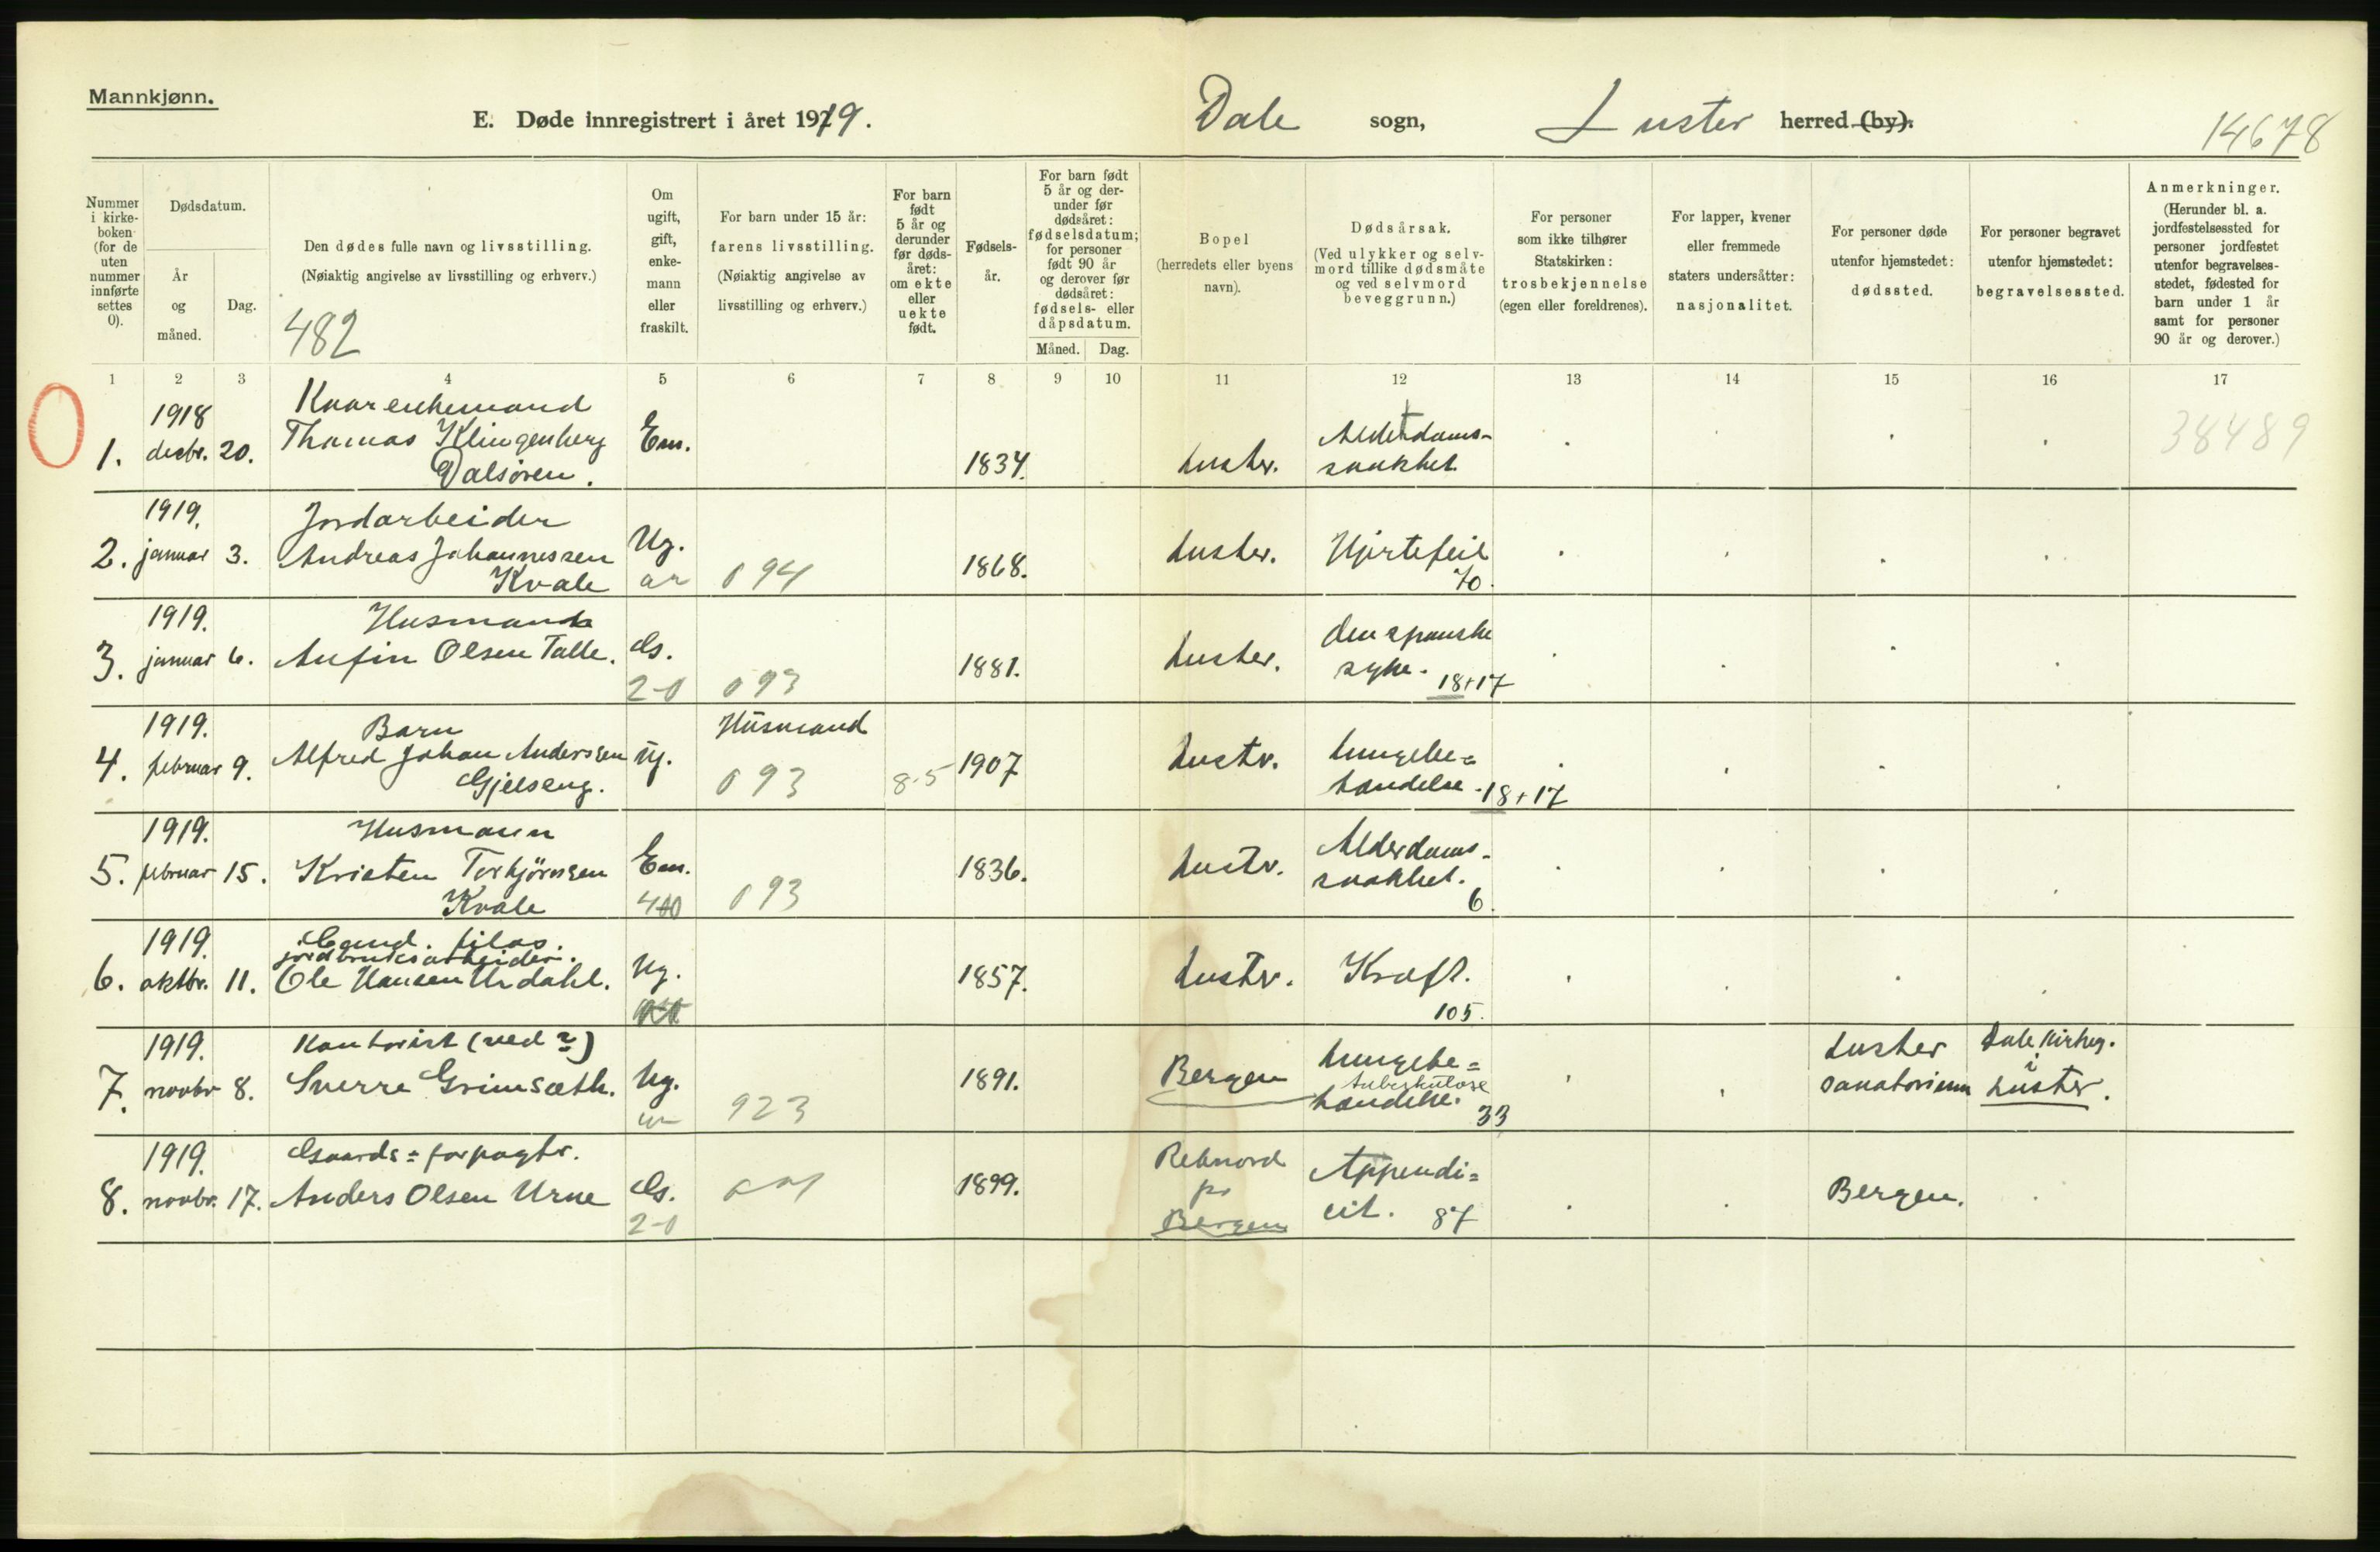 Mannkjønn.
E. Døde innregistrert i året 1919.
Dale sogn, Luster herred (by).
14678
Nummer i kirke-boken (for de uten nummer innførte settes 0).
Dødsdatum.
År og måned.
Dag.
Den dødes fulle navn og livsstilling.
(Nøiaktig angivelse av livsstilling og erhverv.)
482
Om ugift, gift, enke-mann eller fraskilt.
For barn under 15 år: farens livsstilling.
(Nøiaktig angivelse av livsstilling og erhverv.)
For barn født 5 år og derunder før døds-året: om ekte eller uekte født.
Fødsels-år.
For barn født 5 år og der-under før dødsåret: fødselsdatum; for personer født 90 år og derover før dødsåret: fødsels- eller dåpsdatum.
Måned. Dag.
Bopel
(herredets eller byens navn).
Dødsårsak.
(Ved ulykker og selv-mord tillike dødsmåte og ved selvmord beveggrunn.)
For personer som ikke tilhører Statskirken: trosbekjennelse (egen eller foreldrenes).
For lapper, kvener eller fremmede staters undersåtter: nasjonalitet.
For personer døde utenfor hjemstedet: dødssted.
For personer begravet utenfor hjemstedet: begravelsessted.
Anmerkninger.
(Herunder bl. a. jordfestelsessted for personer jordfestet utenfor begravelses-stedet, fødested for barn under 1 år samt for personer 90 år og derover.)
1 2 3 4 5 6 7 8 9 10 11 12 13 14 15 16 17
1918
1. desbr. 20. Thomas Klingenberg Em. 1834. Luster. Alderdoms-
Dalsøren. svakhet 38489
1919. Jordarbeider
2. januar 3. Andreas Johannessen Ug. 1868. Luster. Hjertefeil
Kvale 094 70.
1919. Husmand
3. januar 6. Anfin Olsen Talle. G. 1881. Luster. den spanske
2-0 093 syke. 18+17
1919. Barn Husmand
4. februar 9. Alfred Johan Anderssen Ug. 1907 Lustr. Lungebe=
Gjelseng. 093 8-5 tændelse. 18+17
1919. Husmann
5. februar 15. Kristen Torbjørnsen Em. 1836. Lustr. Alderdoms-
Kvale 093 svakhet. 6.
1919. Cand. filos.
jordbruksarbeider.
6. oktbr. 11. Ole Hansen Urdahl. Ug. 1857. Lustr. Kræft.
105.
1919. Kontorist (ved ?)
7. novbr 8. Sverre Grimsæth. Ug. 1891. Bergen Lungebe= Luster sanatorium Dale kirkeg. i Luster.
923 tuberkuløse
tændelse. 33
1919. Gaards=forpagtr.
8. novbr. 17. Anders Olsen Urne G. 1899. pr Bergen Appendi= Bergen.
2-0 cit. 87